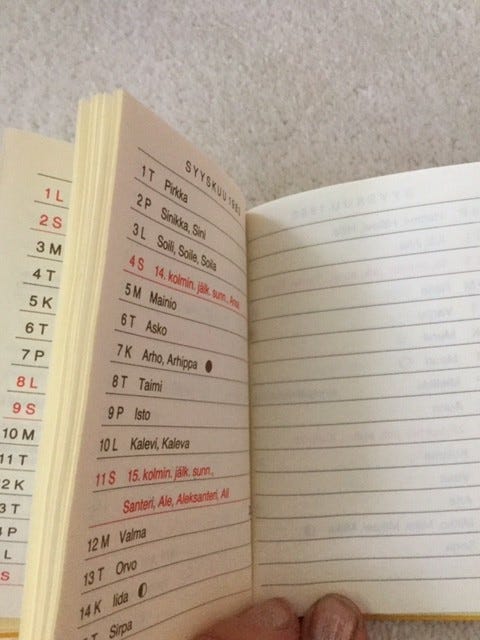 1 L
2 S
3 M
4 T
5 K
6 T
7 P
8 L
9 S
10 M
11 T
2 K
3 T
4 P
L
S
SYYSKUU 1983
1 T Pirkka
2 P Sinikka, Sini
3 L Soili, Soile, Soila
4 S 14. kolmin. jälk. sunn., Ansa
5 M Mainio
6 T Asko
7 K Arho, Arhippa
8 T Taimi
9 P Isto
10 L Kalevi, Kaleva
11 S 15. kolmin. jälk. sunn.,
Santeri, Ale, Aleksanteri, Ali
12 M Valma
13 T Orvo
14 K Iida
T Sirpa